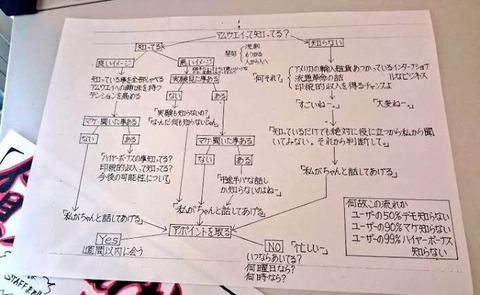 アムウェイって知ってる？
知ってる
知らない
良いイメージ
悪いイメージ
知っている事を全部しゃべる
アムウェイへの興味を持つ
テンションを高める
実験見た事ある
ない
ある
「実験も知らないの？
「なんだ何も知らないじゃん」
マケ聞いた事ある
ない
ある
「ハイヤーボーナスの事知ってる？
印税的収入って知ってる？
今後の可能性について」
マケ聞いた事ある
ない
ある
か知らないのよねー」
「私がちゃんと話してあげる」
「私がちゃんと話してあげる」
「何それ？」
アメリカの輸入雑貨あつかっているインターナショナ
ルなビジネス
流通革命の話
印税的収入を得るチャンスよ
「すごいねー」
「大変ねー」
「知っているだけでも絶対に役に立つから私から聞
いてみな。それから判断して」
「私がちゃんと話してあげる」
アポイントを取る
Yes
1週間以内に会う
NO
「忙しい」
いつならあいてる？
何曜日なら？
何時なら？
何故この流れか
ユーザーの50%デモ知らない
ユーザーの90%マケ知らない
ユーザーの99%ハイヤーボーナス
知らない